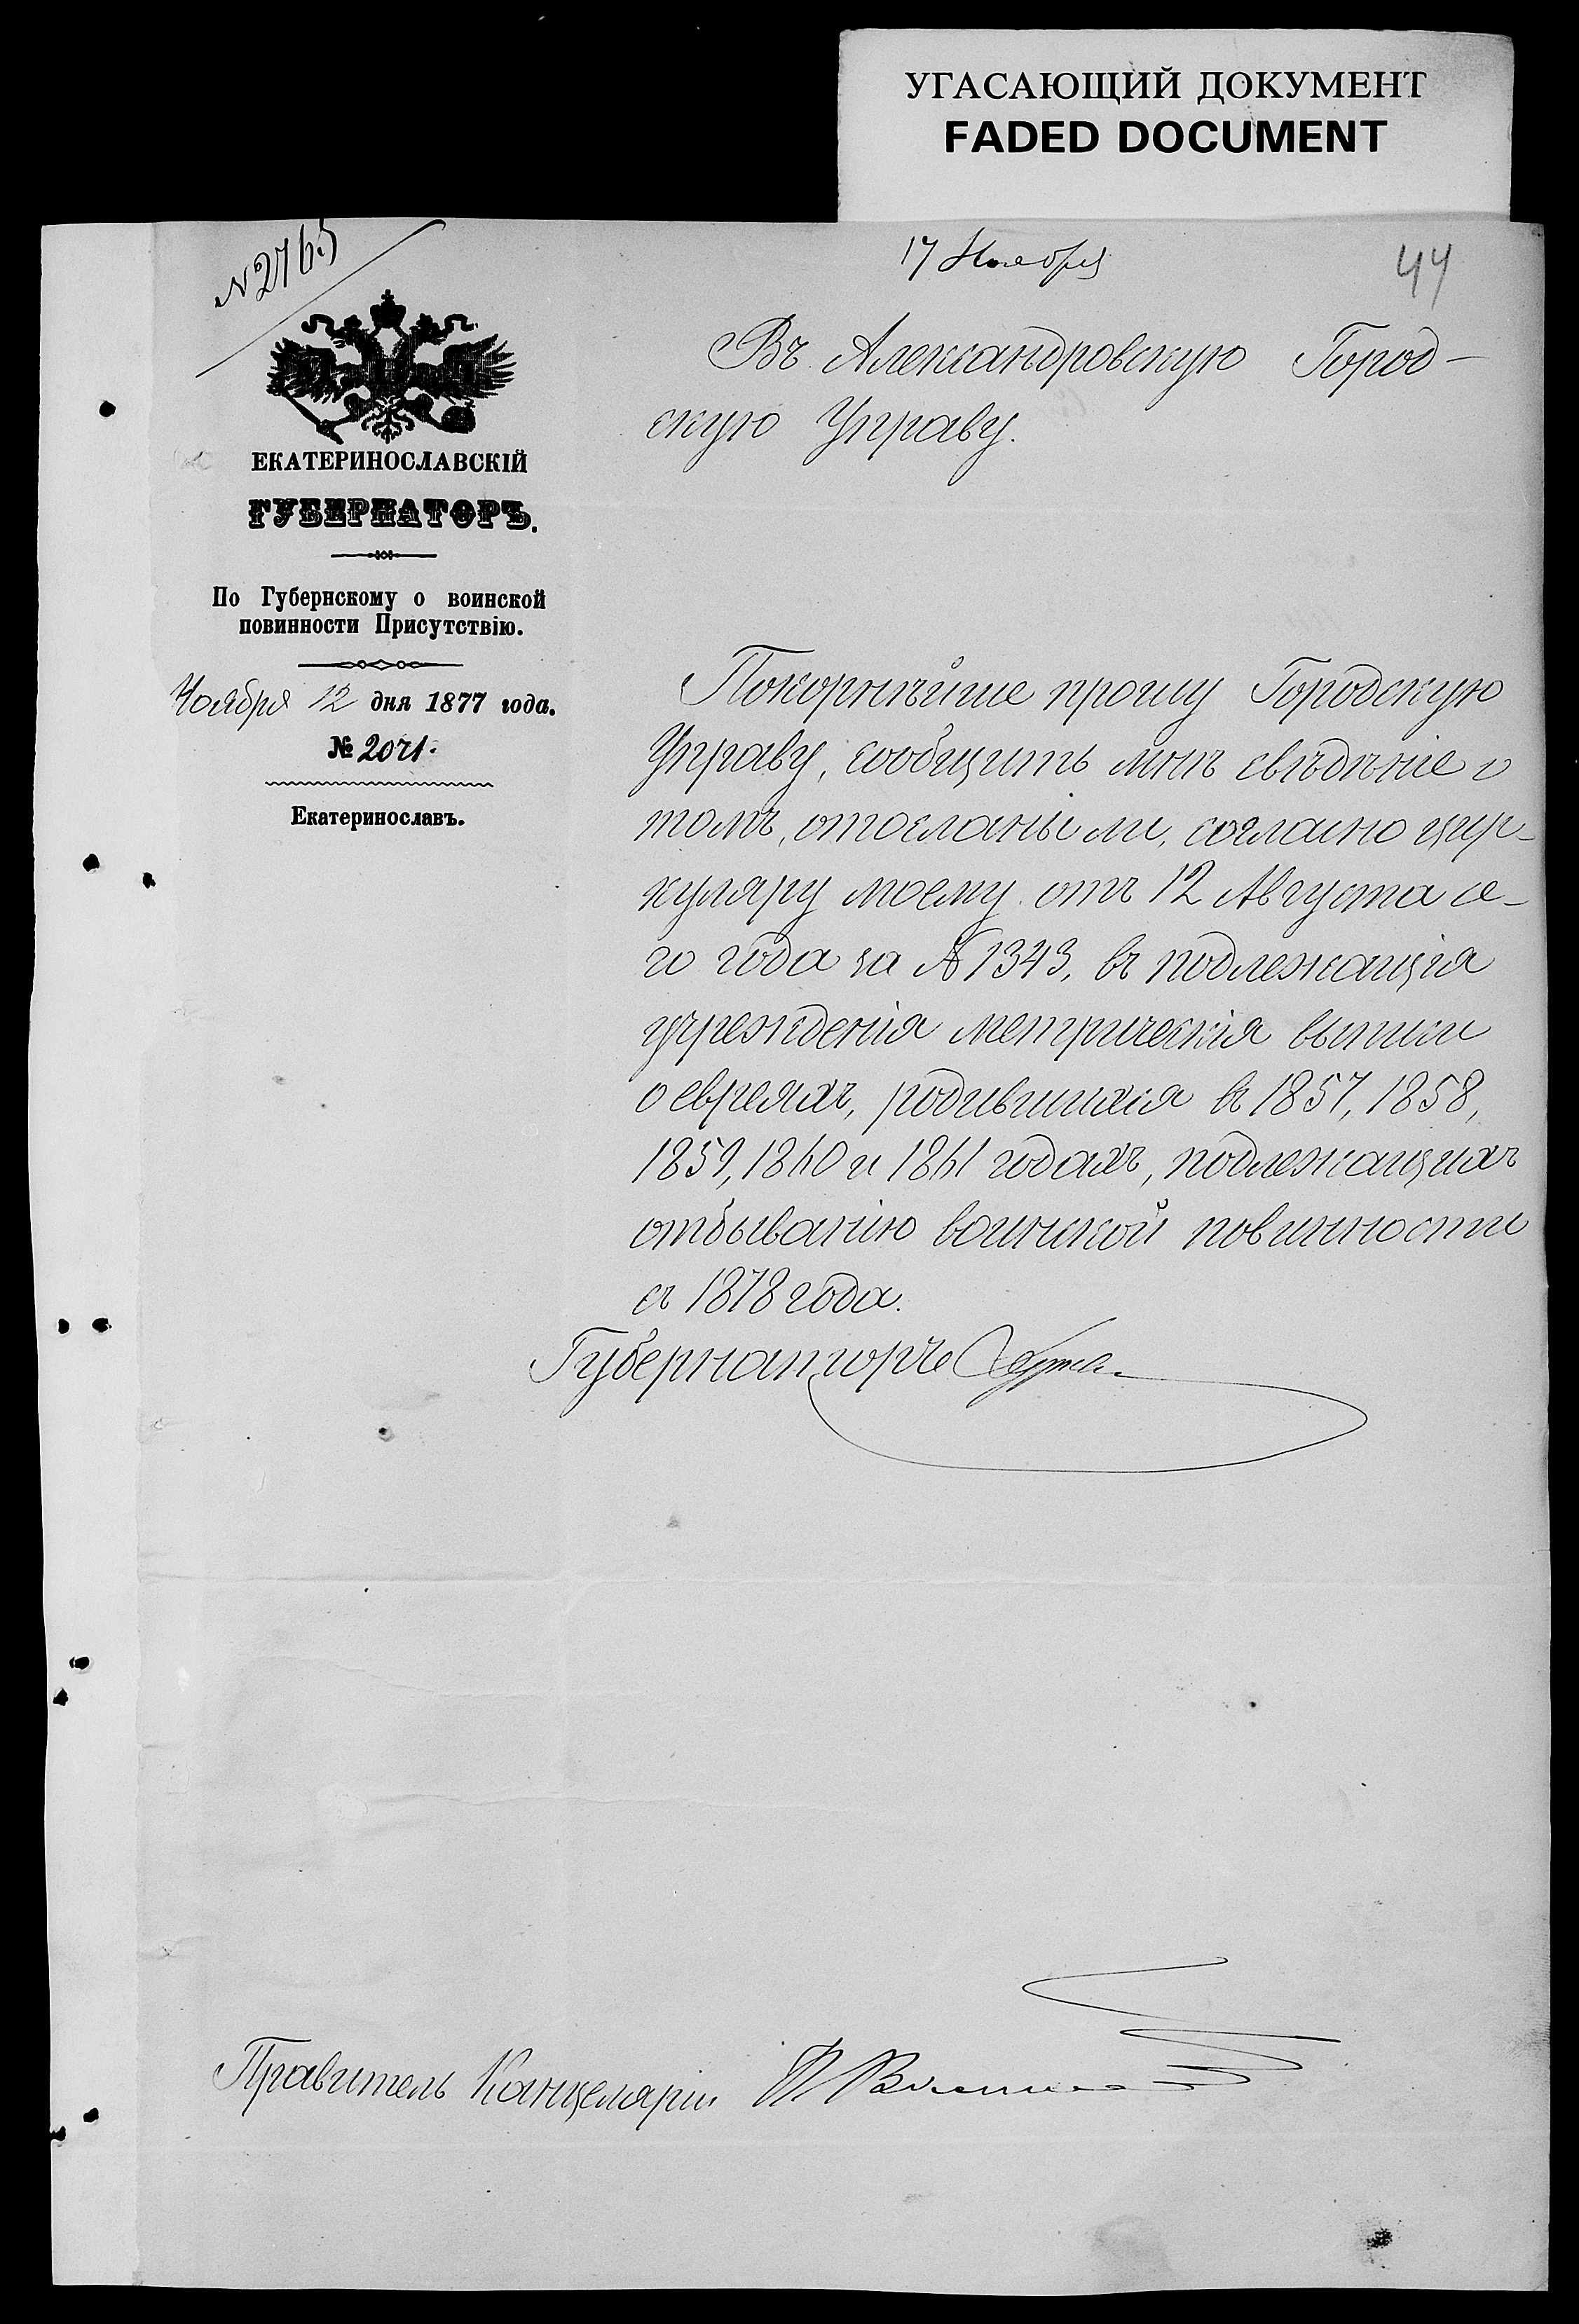 УГАСАЮЩИЙ ДОКУМЕНТ
FADED DOCUMENT
№ 2765
17 Ноября
44
ЕКАТЕРИНОСЛАВСКІЙ
ГУБЕРНАТОРЪ.
По Губернскому о воинской
повинности Присутствію.
Ноября 12 дня 1877 года.
№ 2071.
Екатеринославъ.
Въ Александровскую Город-
скую Управу.
Покорнѣйше прошу Городскую
Управу, сообщить мнѣ свѣдѣніе о
томъ, отосланы ли, согласно цир-
куляру моему отъ 12 Августа се-
го года за № 1343, въ подлежащія
учрежденія метрическія выписи
о евреяхъ, родившихся въ 1857, 1858,
1859, 1860 и 1861 годахъ, подлежащихъ
отбыванію воинской повинности
съ 1878 года.
Губернаторъ
Правитель Канцеляріи